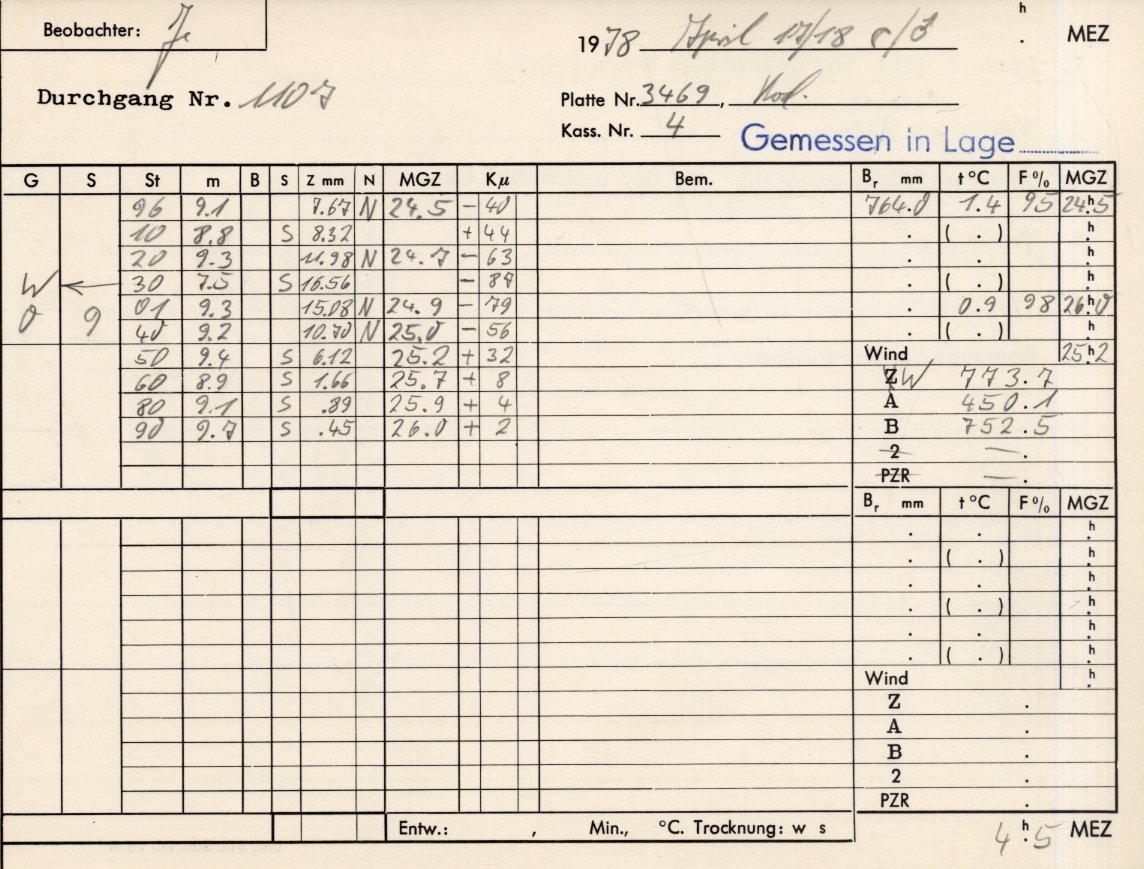 Beobachter: Je
h
1978 April 17/18 . MEZ
Durchgang Nr. 1107
Platte Nr. 3469, Kod.
Kass. Nr. 4 Gemessen in Lage
G S St m B S Z mm N MGZ Kμ Bem. Br mm t °C F % MGZ
96 9.1 7.67 N 24.5 - 40 764.0 1.4 95 24h.5
10 8.8 S 8.32 + 44 . ( . ) h.
20 9.3 11.98 N 24.7 - 63 . . h.
W ← 30 7.5 S 16.56 - 87 . ( . ) h.
0 9 01 9.3 15.08 N 24.9 - 79 . 0.9 98 26h.0
40 9.2 10.70 N 25.0 - 56 . ( . ) h.
50 9.4 S 6.12 25.2 + 32 Wind 25h2
60 8.9 S 1.66 25.7 + 8 W 773.7
80 9.1 S .89 25.9 + 4 A 450.1
90 9.7 S .45 26.0 + 2 B 752.5
2 — .
PZR — .
Br mm t °C F % MGZ
. . h.
. ( . ) h.
. . h.
. ( . ) h.
. . h.
. ( . ) h.
Wind h.
Z .
A .
B .
2 .
PZR .
Entw.: , Min., °C. Trocknung: w s 4h.5 MEZ